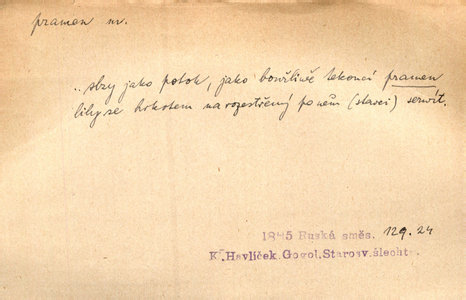 pramen m.
.. slzy jako potok, jako bouřlivě tekoucí pramen
lily se krkotem na rozestřený po něm (starci) servít.
1845 Ruská směs. 129.24
K. Havlíček.Gogol.Starosv.šlecht.